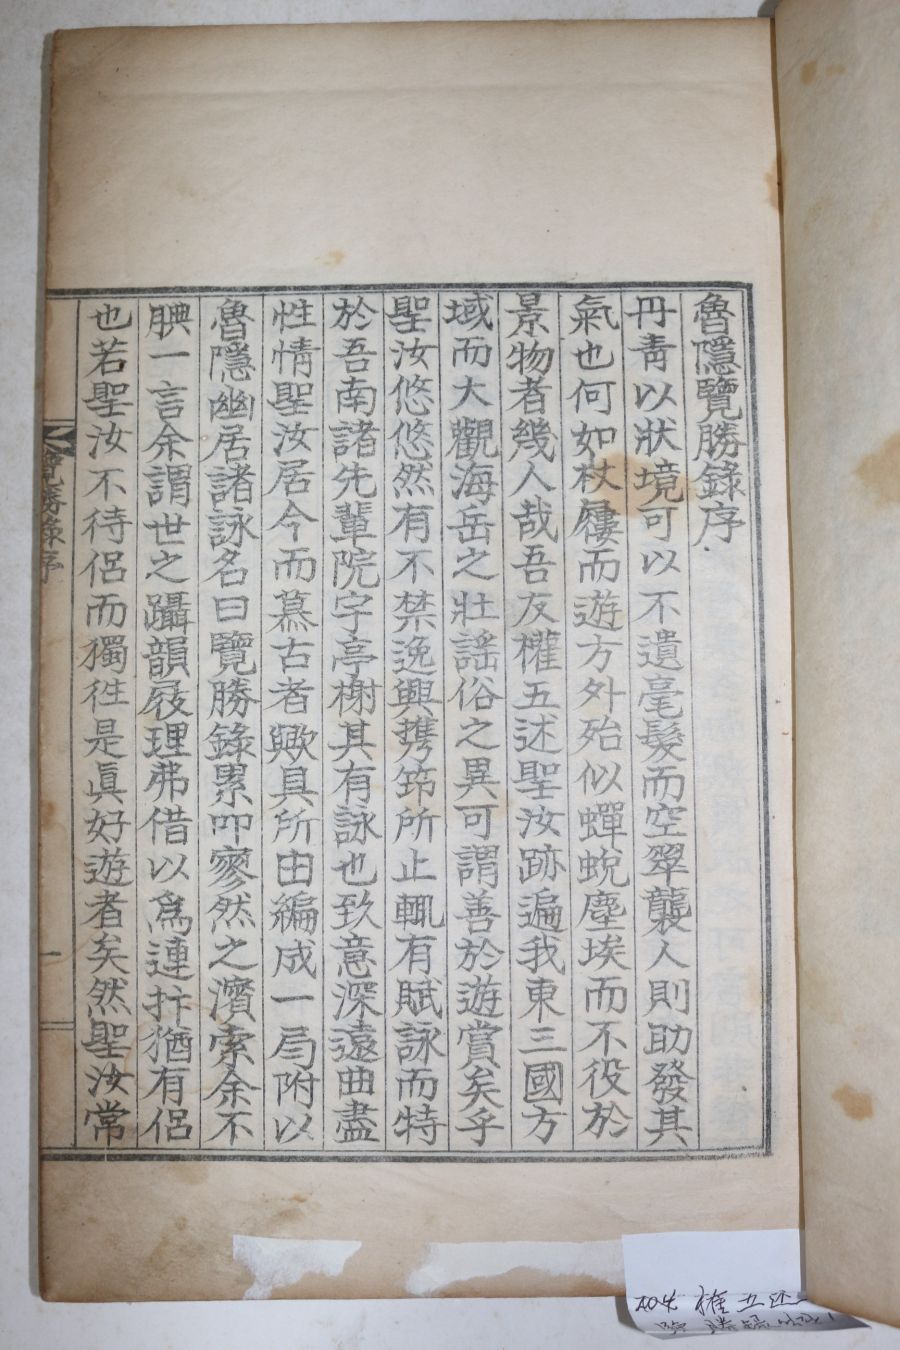 魯隱覽勝錄序
丹靑以狀境可以不遺毫髮而空翠襲人則助發其
氣也何如杖屨而遊方外殆似蟬蛻塵埃而不役於
景物者幾人哉吾友權五述聖汝跡遍我東三國方
域而大觀海岳之壯謠俗之異可謂善於遊賞矣乎
聖汝悠悠然有不禁逸興携笻所止輒有賦詠而特
於吾南諸先輩院宇亭榭其有詠也致意深遠曲盡
性情聖汝居今而慕古者歟具所由編成一局附以
魯隱幽居諸詠名曰覽勝錄累叩寥然之濱索余不
腆一言余謂世之躡韻屐理弗借以爲連抃猶有侶
也若聖汝不待侶而獨徃是眞好遊者矣然聖汝常
覽勝錄序
一
권五述